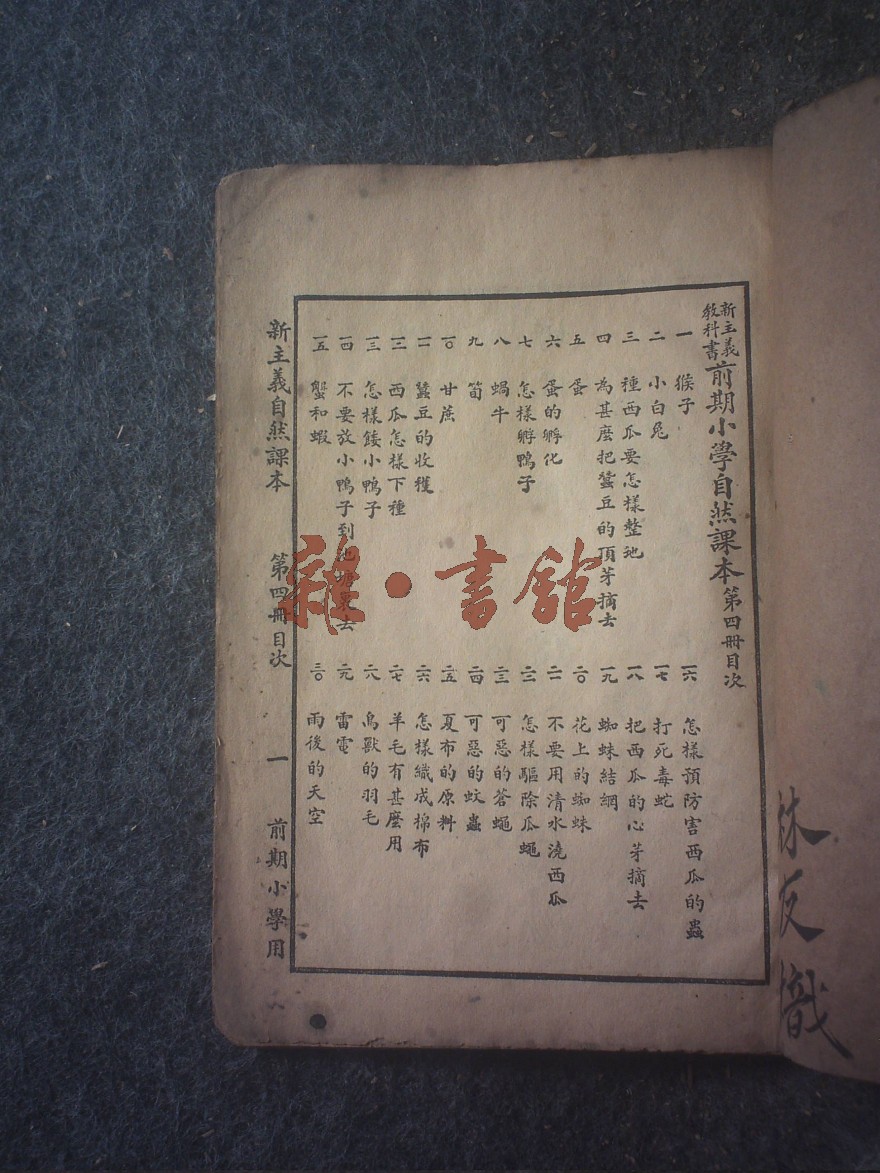 新主義教科書 前期小學自然課本 第四冊目次
一 猴子
二 小白兔
三 種西瓜要怎樣整地
四 為甚麼把蠶豆的頂芽摘去
五 蛋
六 蛋的孵化
七 怎樣孵鴨子
八 蝸牛
九 筍
一〇 甘蔗
一一 蠶豆的收穫
一二 西瓜怎樣下種
一三 怎樣餧小鴨子
一四 不要放小鴨子到池塘裏去
一五 蟹和蝦
一六 怎樣預防害西瓜的蟲
一七 打死毒蛇
一八 把西瓜的心芽摘去
一九 蜘蛛結網
二〇 花上的蜘蛛
二一 不要用清水澆西瓜
二二 怎樣驅除瓜蠅
二三 可惡的蒼蠅
二四 可惡的蚊蟲
二五 夏布的原料
二六 怎樣織成棉布
二七 羊毛有甚麼用
二八 鳥獸的羽毛
二九 雷電
三〇 雨後的天空
新主義自然課本 第四冊目次 一 前期小學用
雜·書館